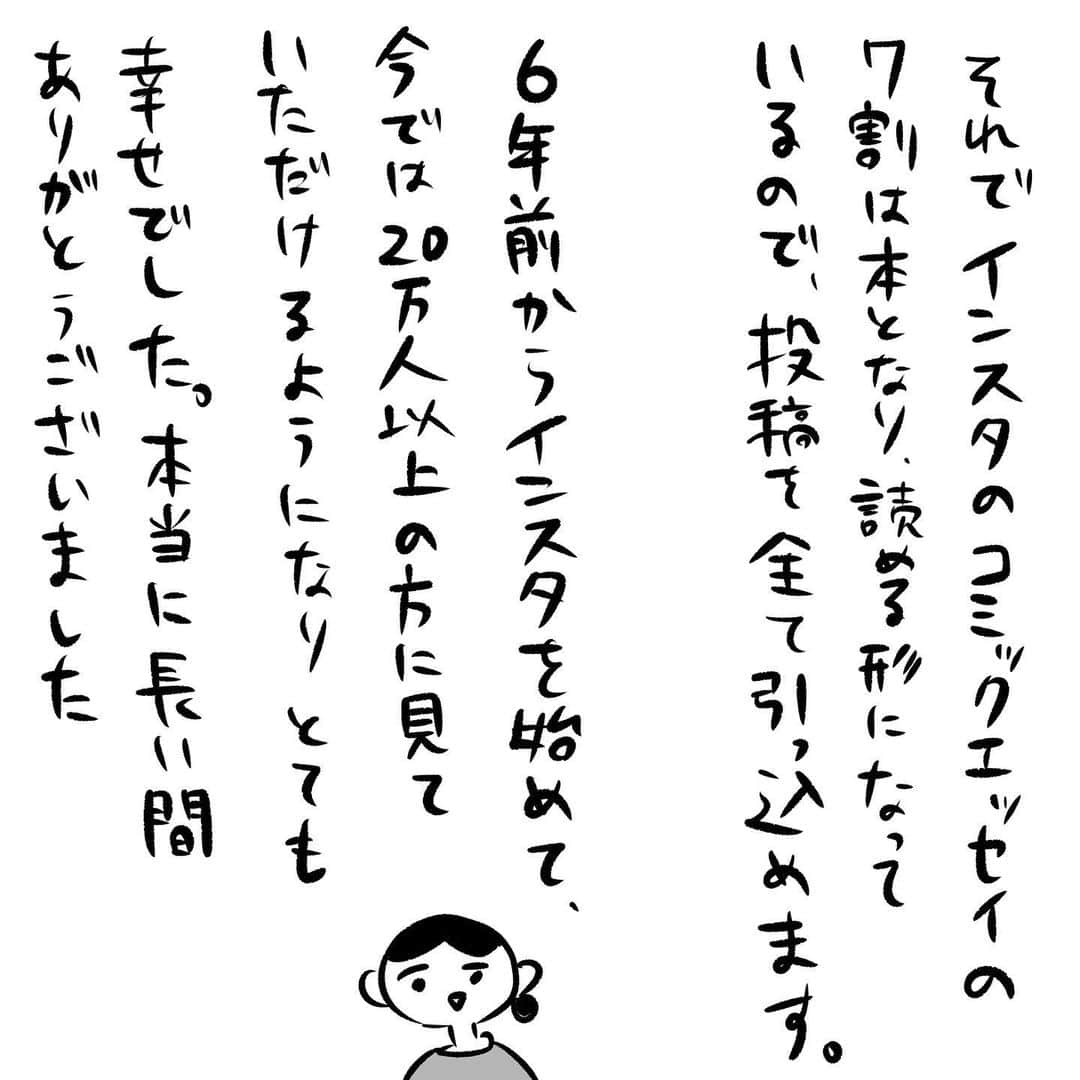 それでインスタのコミックエッセイの
7割は本となり、読める形になって
いるので、投稿を全て引っ込めます。
6年前からインスタを始めて、
今では20万人以上の方に見て
いただけるようになりとても
幸せでした。本当に長い間
ありがとうございました